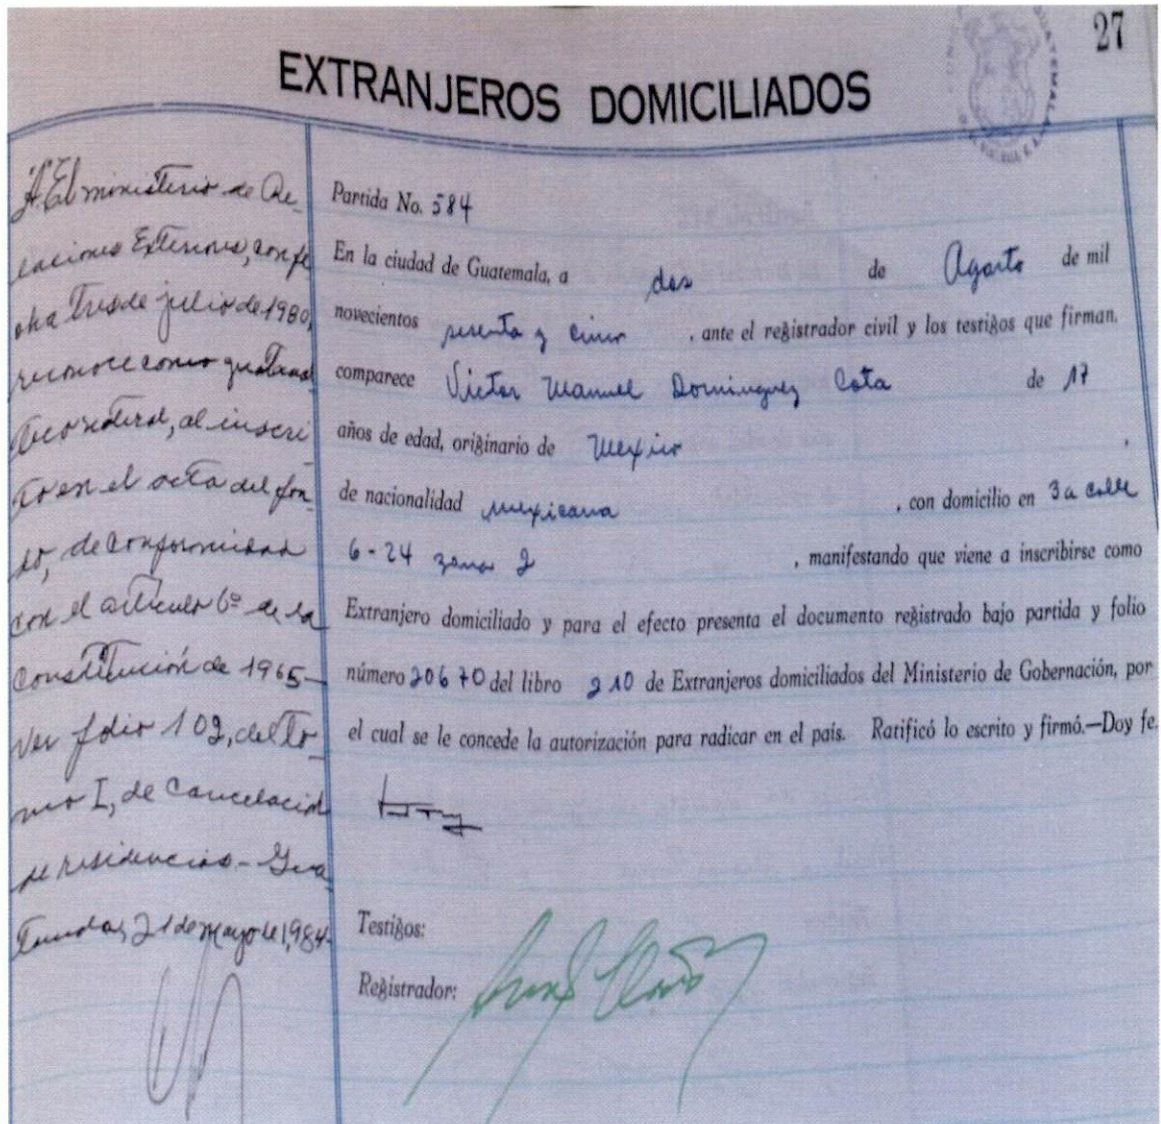 27
EXTRANJEROS DOMICILIADOS
A. El ministerio de Re-
laciones Exteriores, con fe
cha tres de julio de 1980,
reconoce como guatemal
teco natural, al inscri
to en el acta del fon
do, de conformidad
con el artículo 6º de la
Constitución de 1965-
Ver folio 102, del to-
mo I, de Cancelació
de residencias.- Gua
temala, 21 de mayo de 1,984-
Partida No. 584
En la ciudad de Guatemala, a dos de Agosto de mil
novecientos sesenta y cinco , ante el registrador civil y los testigos que firman,
comparece Victor Manuel Dominguez Cota de 17
años de edad, originario de Mexico ,
de nacionalidad mexicana , con domicilio en 3a calle
6-24 zona 2 , manifestando que viene a inscribirse como
Extranjero domiciliado y para el efecto presenta el documento registrado bajo partida y folio
número 20670 del libro 210 de Extranjeros domiciliados del Ministerio de Gobernación, por
el cual se le concede la autorización para radicar en el país. Ratificó lo escrito y firmó.—Doy fe.
Testigos:
Registrador: